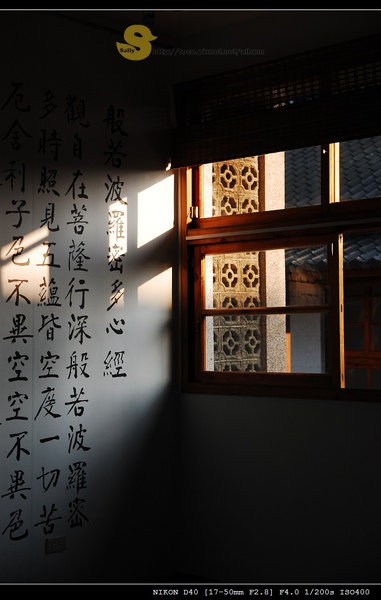 般若波羅密多心經
觀自在菩薩行深般若波羅密
多時照見五蘊皆空度一切苦
厄舍利子色不異空空不異色
NIKON D40 [17-50mm F2.8] F4.0 1/200s ISO400